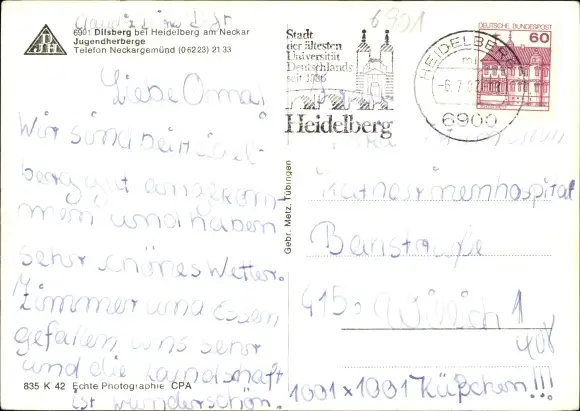 6901 Dilsberg bei Heidelberg am Neckar
Jugendherberge
Telefon Neckargemünd (06223) 21 33
DJH
Liebe Oma!
Wir sind bei Heidel-
berg gut angekom-
men und haben
sehr schönes Wetter.
Zimmer und Essen
gefallen uns sehr
und die Landschaft
ist wunderschön.
835 K 42 Echte Photographie CPA
Gebr. Metz, Tübingen
6901
Stadt
der ältesten
Universität
Deutschlands
seit 1386
Heidelberg
HEIDELBERG
6900
DEUTSCHE BUNDESPOST
60
Katharinenhospital
Bahnstraße
415 Willich 1
408
1001 x 1001 Küßchen!!!